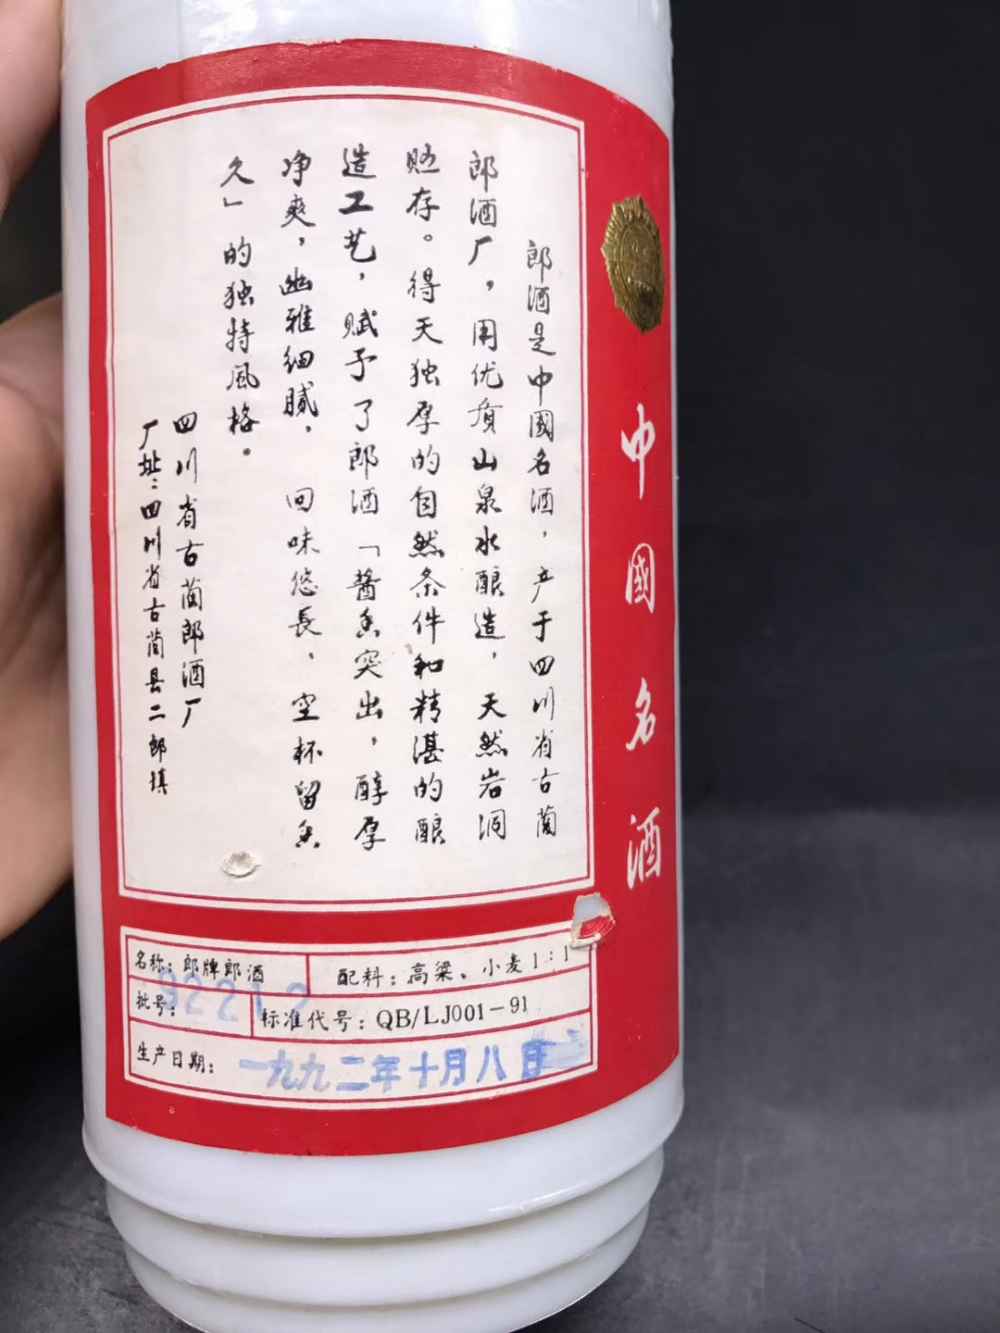 郎酒是中國名酒，产于四川省古蔺
郎酒厂，用优质山泉水酿造，天然岩洞
贮存。得天独厚的自然条件和精湛的酿
造工艺，赋予了郎酒「酱香突出，醇厚
净爽，幽雅细腻，回味悠長，空杯留香
久」的独特風格。
四川省古蔺郎酒厂
厂址：四川省古蔺县二郎镇
中國名酒
名称：郎牌郎酒
配料：高粱、小麦1：1
批号：92212
标准代号：QB/LJ001-91
生产日期：一九九二年十月八日